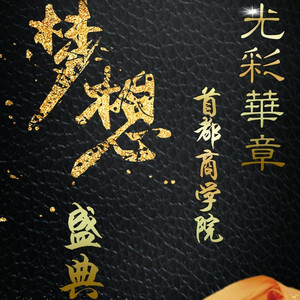 光彩華章
首都商学院
梦想
盛典